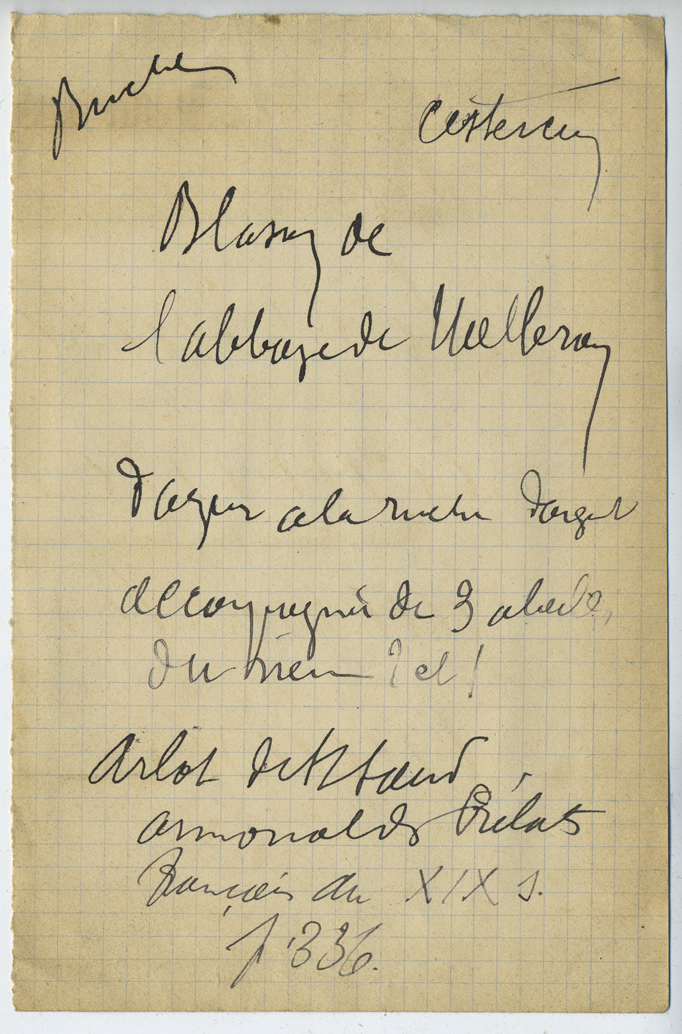 Ruche
cistercien
Blason de
l'abbaye de Melleray
d'azur a la ruche d'argent
accompagnée de 3 abeilles
du même
Arlot de St Saud
armorial des Prélats
français du XIX s.
p. 336.